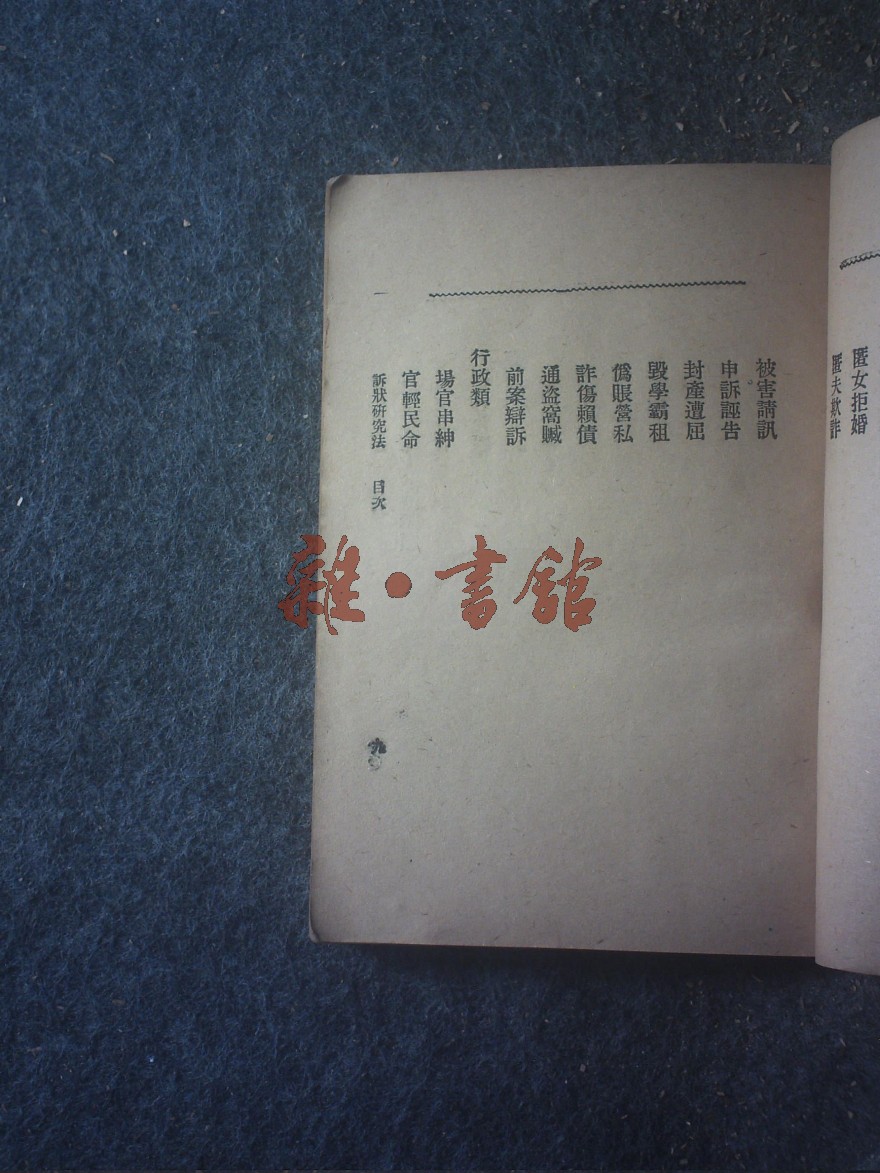 匿女拒婚
匿夫欺詐
被害請訊
申訴誣告
封產遭屈
毀學霸租
僞賬營私
詐傷賴債
通盜窩贓
前案辯訴
行政類
場官串紳
官輕民命
訴狀研究法　目次
九
雜·書館